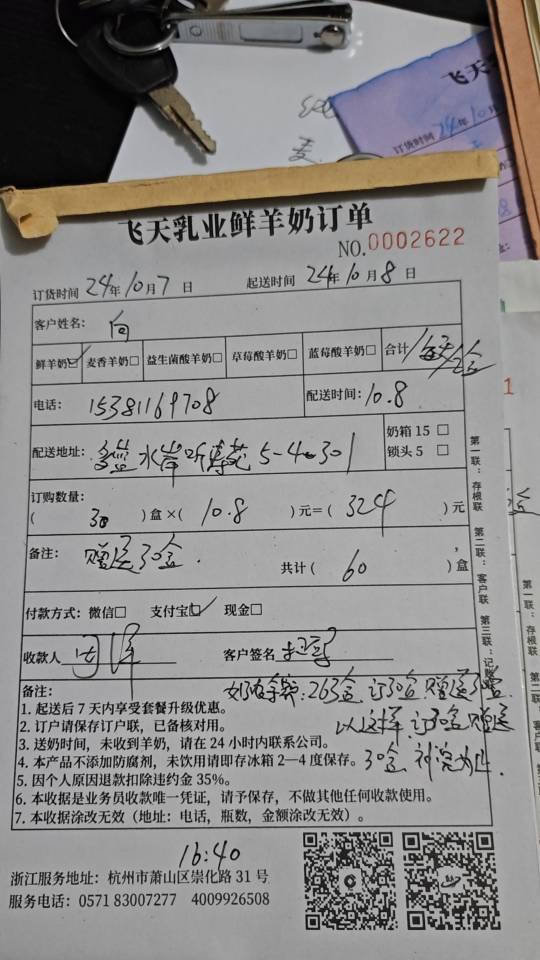 飞天
订货时间 24年10月
飞天乳业鲜羊奶订单
NO.0002622
订货时间 24年10月7日 起送时间 24年10月8日
客户姓名: 向
鲜羊奶☑ 麦香羊奶□ 益生菌酸羊奶□ 草莓酸羊奶□ 蓝莓酸羊奶□ 合计 1盒
电话: 15381169708 配送时间: 10.8
配送地址: 水岸听 5-4-301 奶箱 15 □
锁头 5 □
订购数量:
( 30 )盒×( 10.8 )元=( 324 )元
备注: 赠送30盒. 共计( 60 )盒
付款方式: 微信□ 支付宝☑ 现金□
收款人 客户签名
第一联:存根联 第二联:客户联 第三联:记账
备注: 263盒,订30盒赠送30盒
1. 起送后 7 天内享受套餐升级优惠。 以这样订30盒赠送
2. 订户请保存订户联,已备核对用。
3. 送奶时间,未收到羊奶,请在 24 小时内联系公司。 30盒
4. 本产品不添加防腐剂,未饮用请即存冰箱 2—4 度保存。
5. 因个人原因退款扣除违约金 35%。
6. 本收据是业务员收款唯一凭证,请予保存,不做其他任何收款使用。
7. 本收据涂改无效(地址:电话,瓶数,金额涂改无效)。
16:40
浙江服务地址:杭州市萧山区崇化路 31 号
服务电话:0571 83007277 4009926508